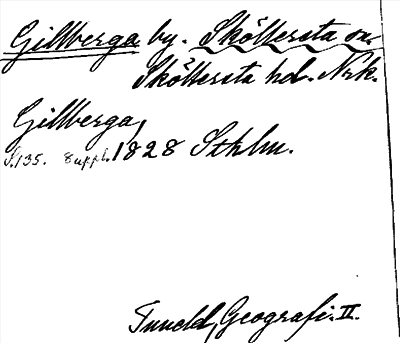 Gillberga by. Sköllersta sn.
Sköllersta hd. Nrk.
Gillberga,
S. 135. Suppl. 1828 Sthlm.
Tuneld, Geografi. II.